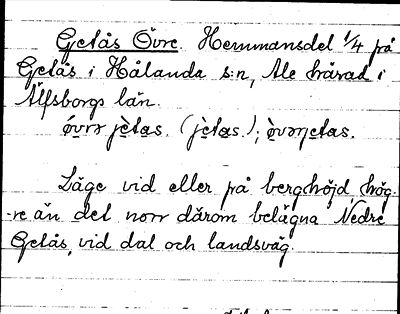 Getås Övre. Hemmansdel 1/4 på
Getås i Hålanda s:n, Ale härad i
Älfsborgs län.
óvrə jètas. (jètas.); òvərjetas.
Läge vid eller på berghöjd, hög-
re än det norr därom belägna Nedre
Getås, vid dal och landsväg.